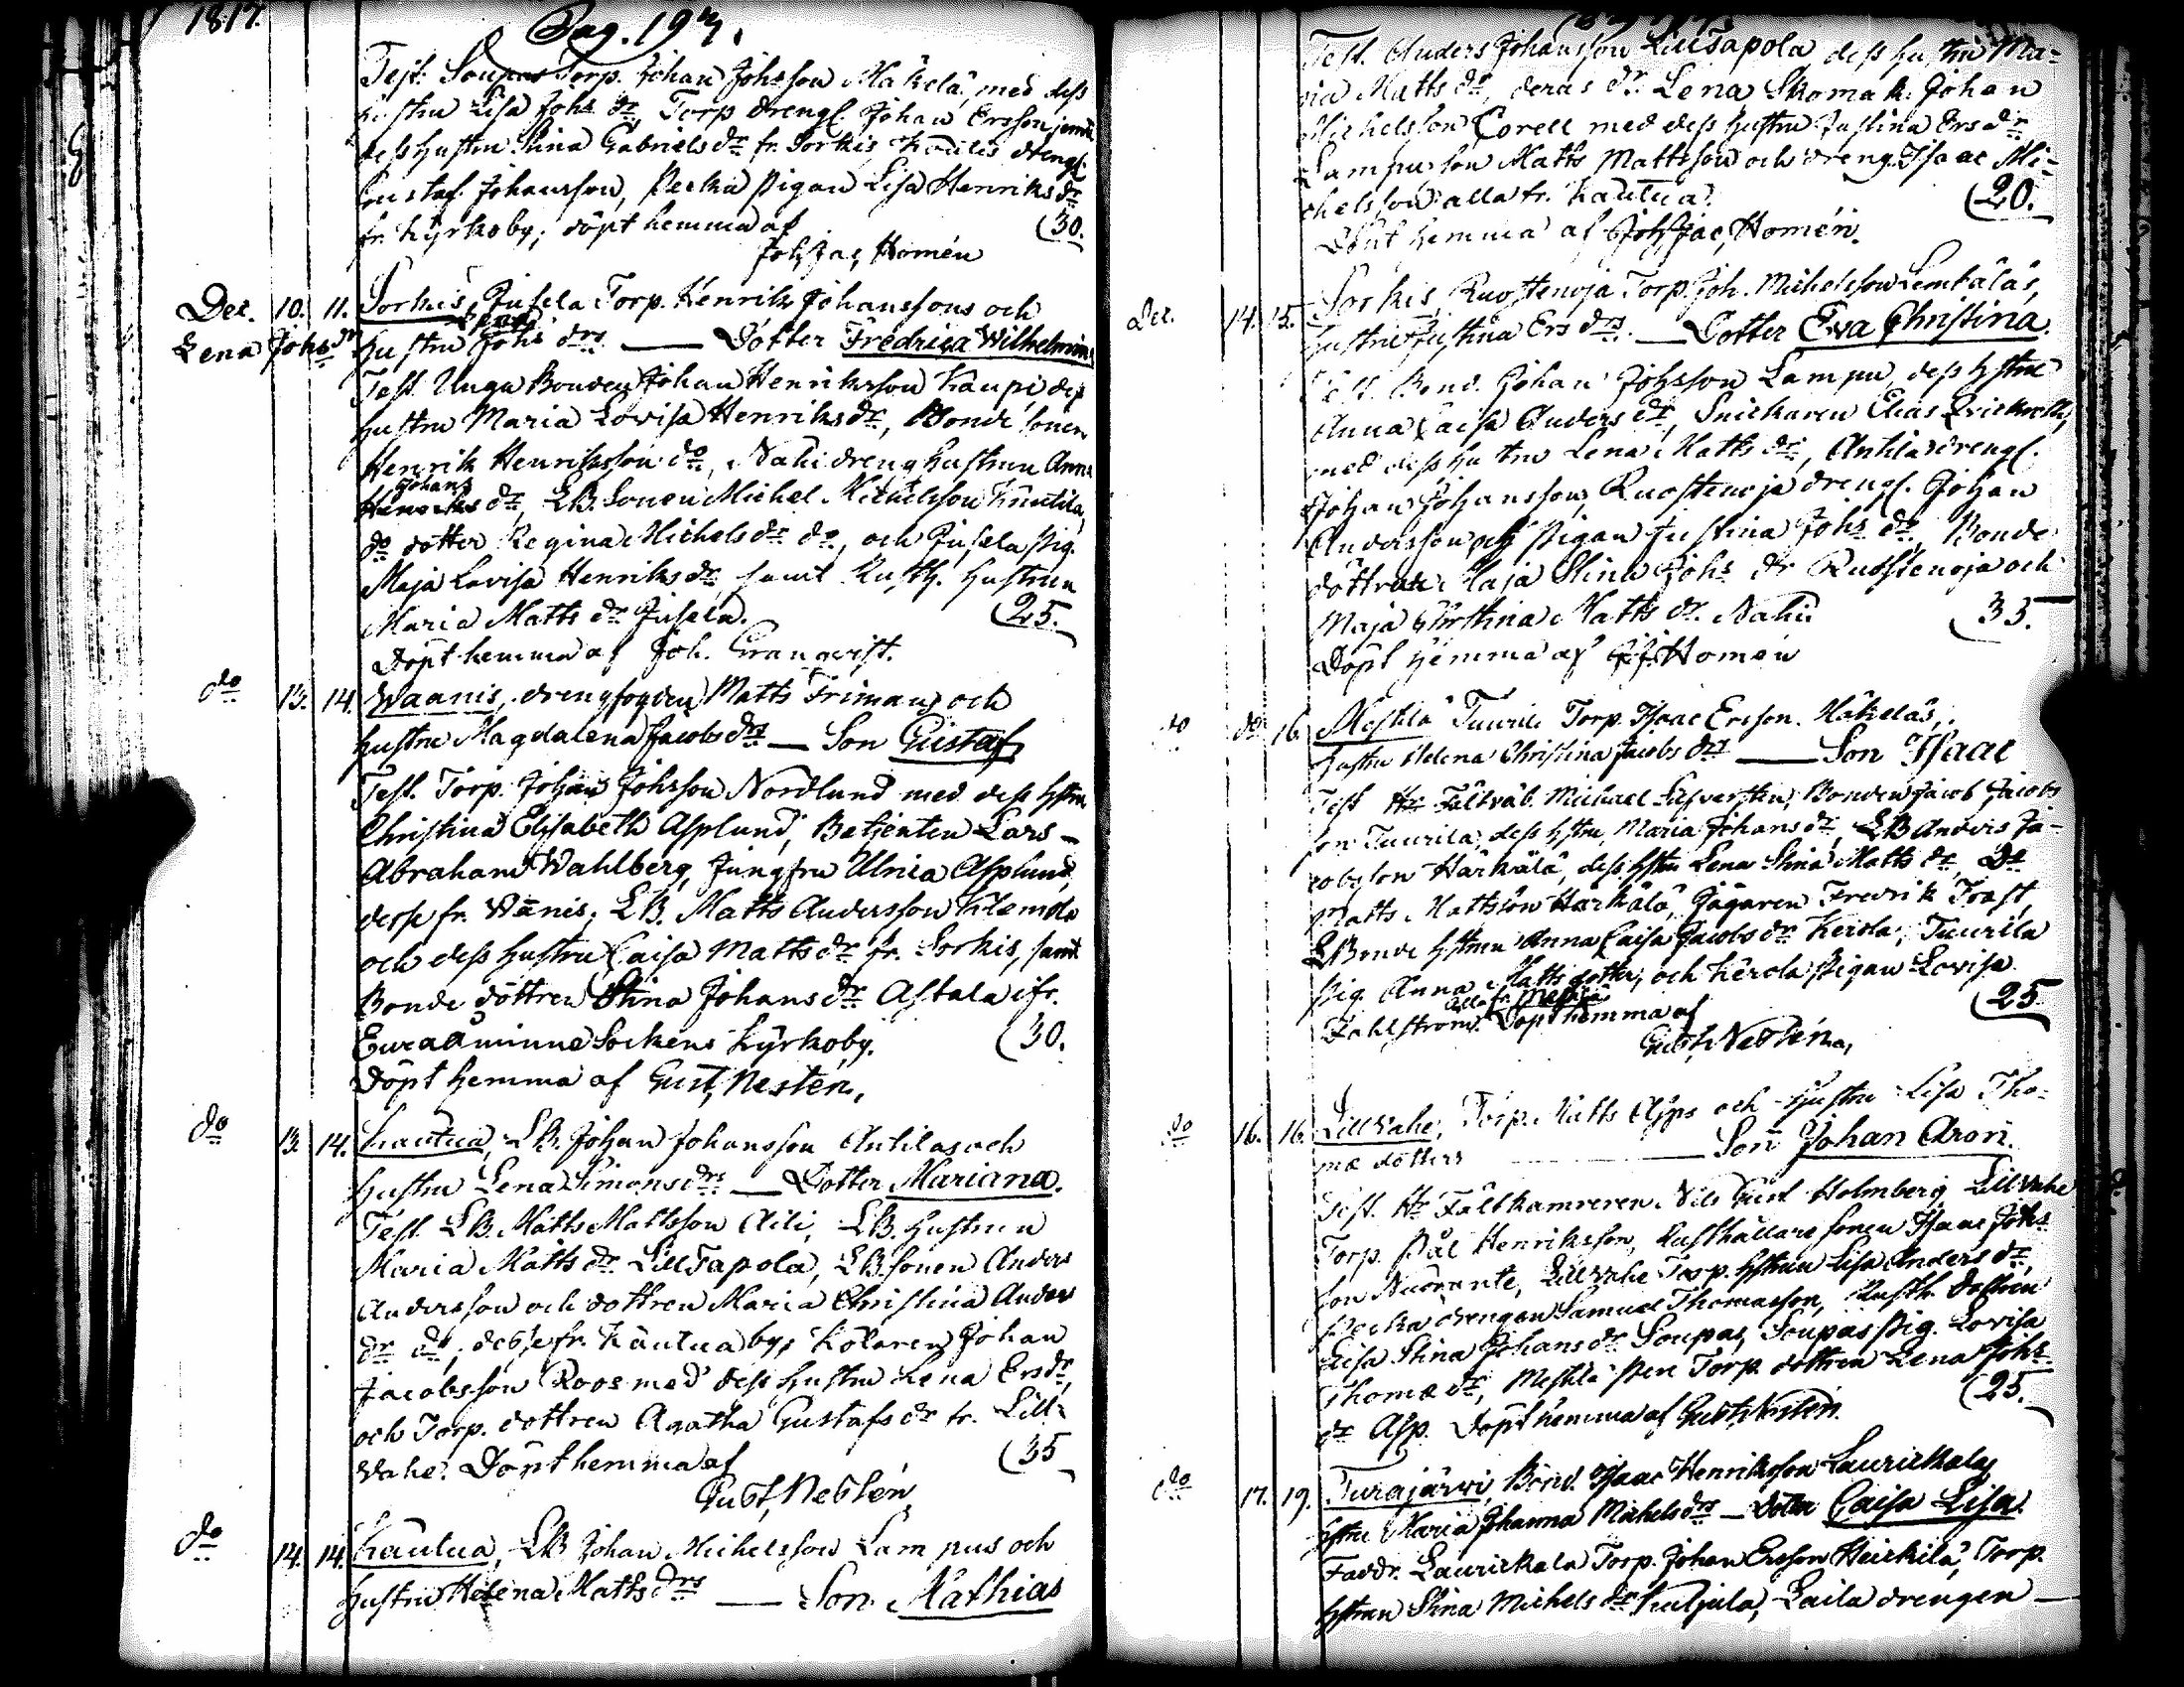 1817.
Pag. 197.
Test. Soupas Torp. Johan Johsson Mäkelä, med dess
hustru Lisa Johs dr, Torp drengs. Johan Ersson jemte
dess hustru Stina Gabriels dr fr. Sorkis, drengs.
Gustaf Johansson, Perka Pigan Lisa Henriks dr
fr. Kyrkoby, döpt hemma af (30.
Joh. Jac. Homén
Dec. 10. 11. Sorkis, Jusela Torp. Henrik Johanssons och
Lena Johs dr hustru Johs drs — Dotter Fredrica Wilhelmina
Test. Unga Bonden Johan Henriksson Kaupi, dess
hustru Maria Lovisa Henriks dr, Bonde sonen
Henrik Henriksson do, Nahi dreng hustrun Anna
Johans
Henriks dr, LB. Sonen Michel Michelsson Knutila,
do dotter Regina Michels dr do, och Jusela Pig.
Maja Lovisa Henriks dr, samt Rusth. hustrun
Maria Matts dr Jusela. (25.
Döpt hemma af Joh. Granqvist.
do 13. 14. Waanis, drengfogden Matts Frimans och
hustru Magdalena Jacobs drs — Son Gustaf
Test. Torp. Johan Johsson Nordlund med dess hstru
Christina Elisabeth Asplund, Betjenten Lars
Abraham Wahlberg, Jungfru Ulrica Asplund,
desse fr. Wånis; LB. Matts Andersson Klemola
och dess hustru Caisa Matts dr fr. Sorkis, samt
Bonde döttren Stina Johans dr Astala ifr.
Euraåminne Sockens Kyrkoby. (30.
Döpt hemma af Gust. Nestén.
do 13. 14. Kautua, LB. Johan Johansson Antilas och
hustru Lena Simons drs — Dotter Mariana.
Test. LB. Matts Mattsson Aili, LB. hustrun
Maria Matts dr LillTapola, LB. sonen Anders
Andersson och dottren Maria Christina Anders
dr do, desse fr. Kautua by, Kolaren Johan
Jacobsson Roos med dess hustru Lena Ers dr,
och Torp. dottren Agatha Gustafs dr fr. Lill-
Vahe. Döpt hemma af (35
Gust. Nestén
do 14. 14. Kautua, LB. Johan Michelsson Lampus och
hustru Helena Matts drs — Son Mathias
Test. Anders Johansson LillTapola, dess hustru Ma-
ria Matts dr, deras dr Lena, Skomak. Johan
Michelsson Corell med dess hustru Justina Ers dr,
Lampu son Matts Mattsson och dreng. Isaac Mi-
chelsson alla fr. Kautua. (20.
Döpt hemma af Joh. Jac. Homén.
Dec. 14. 15. Sorkis, Ruostenoja Torp. Joh. Michelsson Lenkäläs,
hustru Justina Ers drs. — Dotter Eva Christina.
Test. Bond. Johan Johsson Lampu, dess hstru
Anna Caisa Anders dr, Snickaren Elias
med dess hustru Lena Matts dr, Antila drengs.
Johan Johansson, Ruostenoja drengs. Johan
Andersson och Pigan Justina Johs dr, Bonde
döttrar Maja Stina Johs dr Ruostenoja och
Maja Christina Matts dr Nahi. (35.
Döpt hemma af J. J. Homén
do do 16. Mestilä Tuurila Torp. Isaac Ersson Mäkeläs,
hustru Helena Christina Jacobs drs — Son Isaac
Test. Hr Fältväb. Michael Silfversten, Bonden Jacob Jacobs
son Tuurila, dess hstru Maria Johans dr, LB Anders Ja-
cobsson Härkälä, dess hstru Lena Stina Matts dr, Do
Matts Mattsson Härkälä, Jägaren Fredrik Trast,
LBonde hstrun Anna Caisa Jacobs dr Kerola, Tuurila
Pig. Anna Matts dotter, och Kerola Pigan Lovisa
alla fr. Mestilä
Fahlström. Döpt hemma af (25
Gust. Nestén.
do 16. 16. Lillvahe, Torp. Matts Asps och hustru Lisa Tho-
mæ dotters — Son Johan Aron.
Test. Hr Fältkamreren Nils Gust. Holmberg, Lillvahe
Torp. Pål Henriksson, Rusthållare sonen Isaac Johs
son Nuorante, Lillvahe Torp. hstrun Lisa Anders dr,
Perka drengen Samuel Thomasson, Rusth. dottren
Caisa Stina Johans dr Soupas, Soupas Pig. Lovisa
Thomæ dr, Mestilä Peri Torp. dottren Lena Johs
dr Asp. Döpt hemma af Gust. Nestén. (25.
do 17. 19. Turajärvi, Bond. Isaac Henriksson Laurickalas
hstru Maria Johanna Michels drs — Dotter Caisa Lisa.
Faddr. Laurickala Torp. Johan Ersson Heickilä, Torp.
hstrun Stina Michels dr Kuljula, Laila drengen —